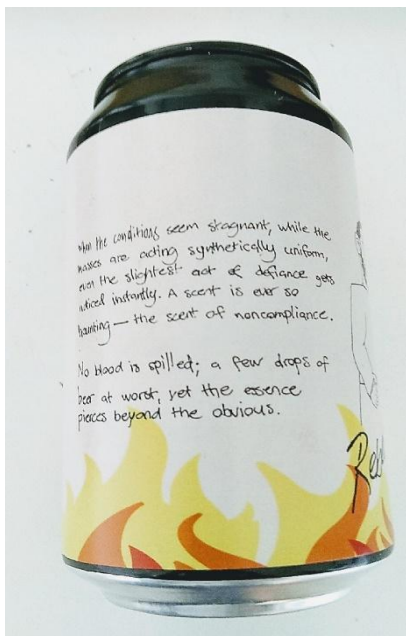 When the conditions seem stagnant, while the
masses are acting synthetically uniform,
even the slightest act of defiance gets
noticed instantly. A scent is ever so
haunting — the scent of noncompliance.
No blood is spilled; a few drops of
beer at worst, yet the essence
pierces beyond the obvious.